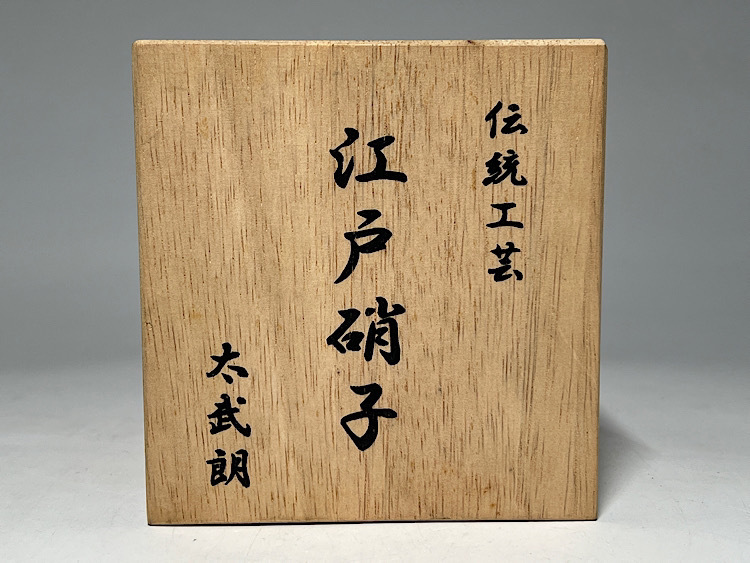 伝統工芸
江戸硝子
太武朗